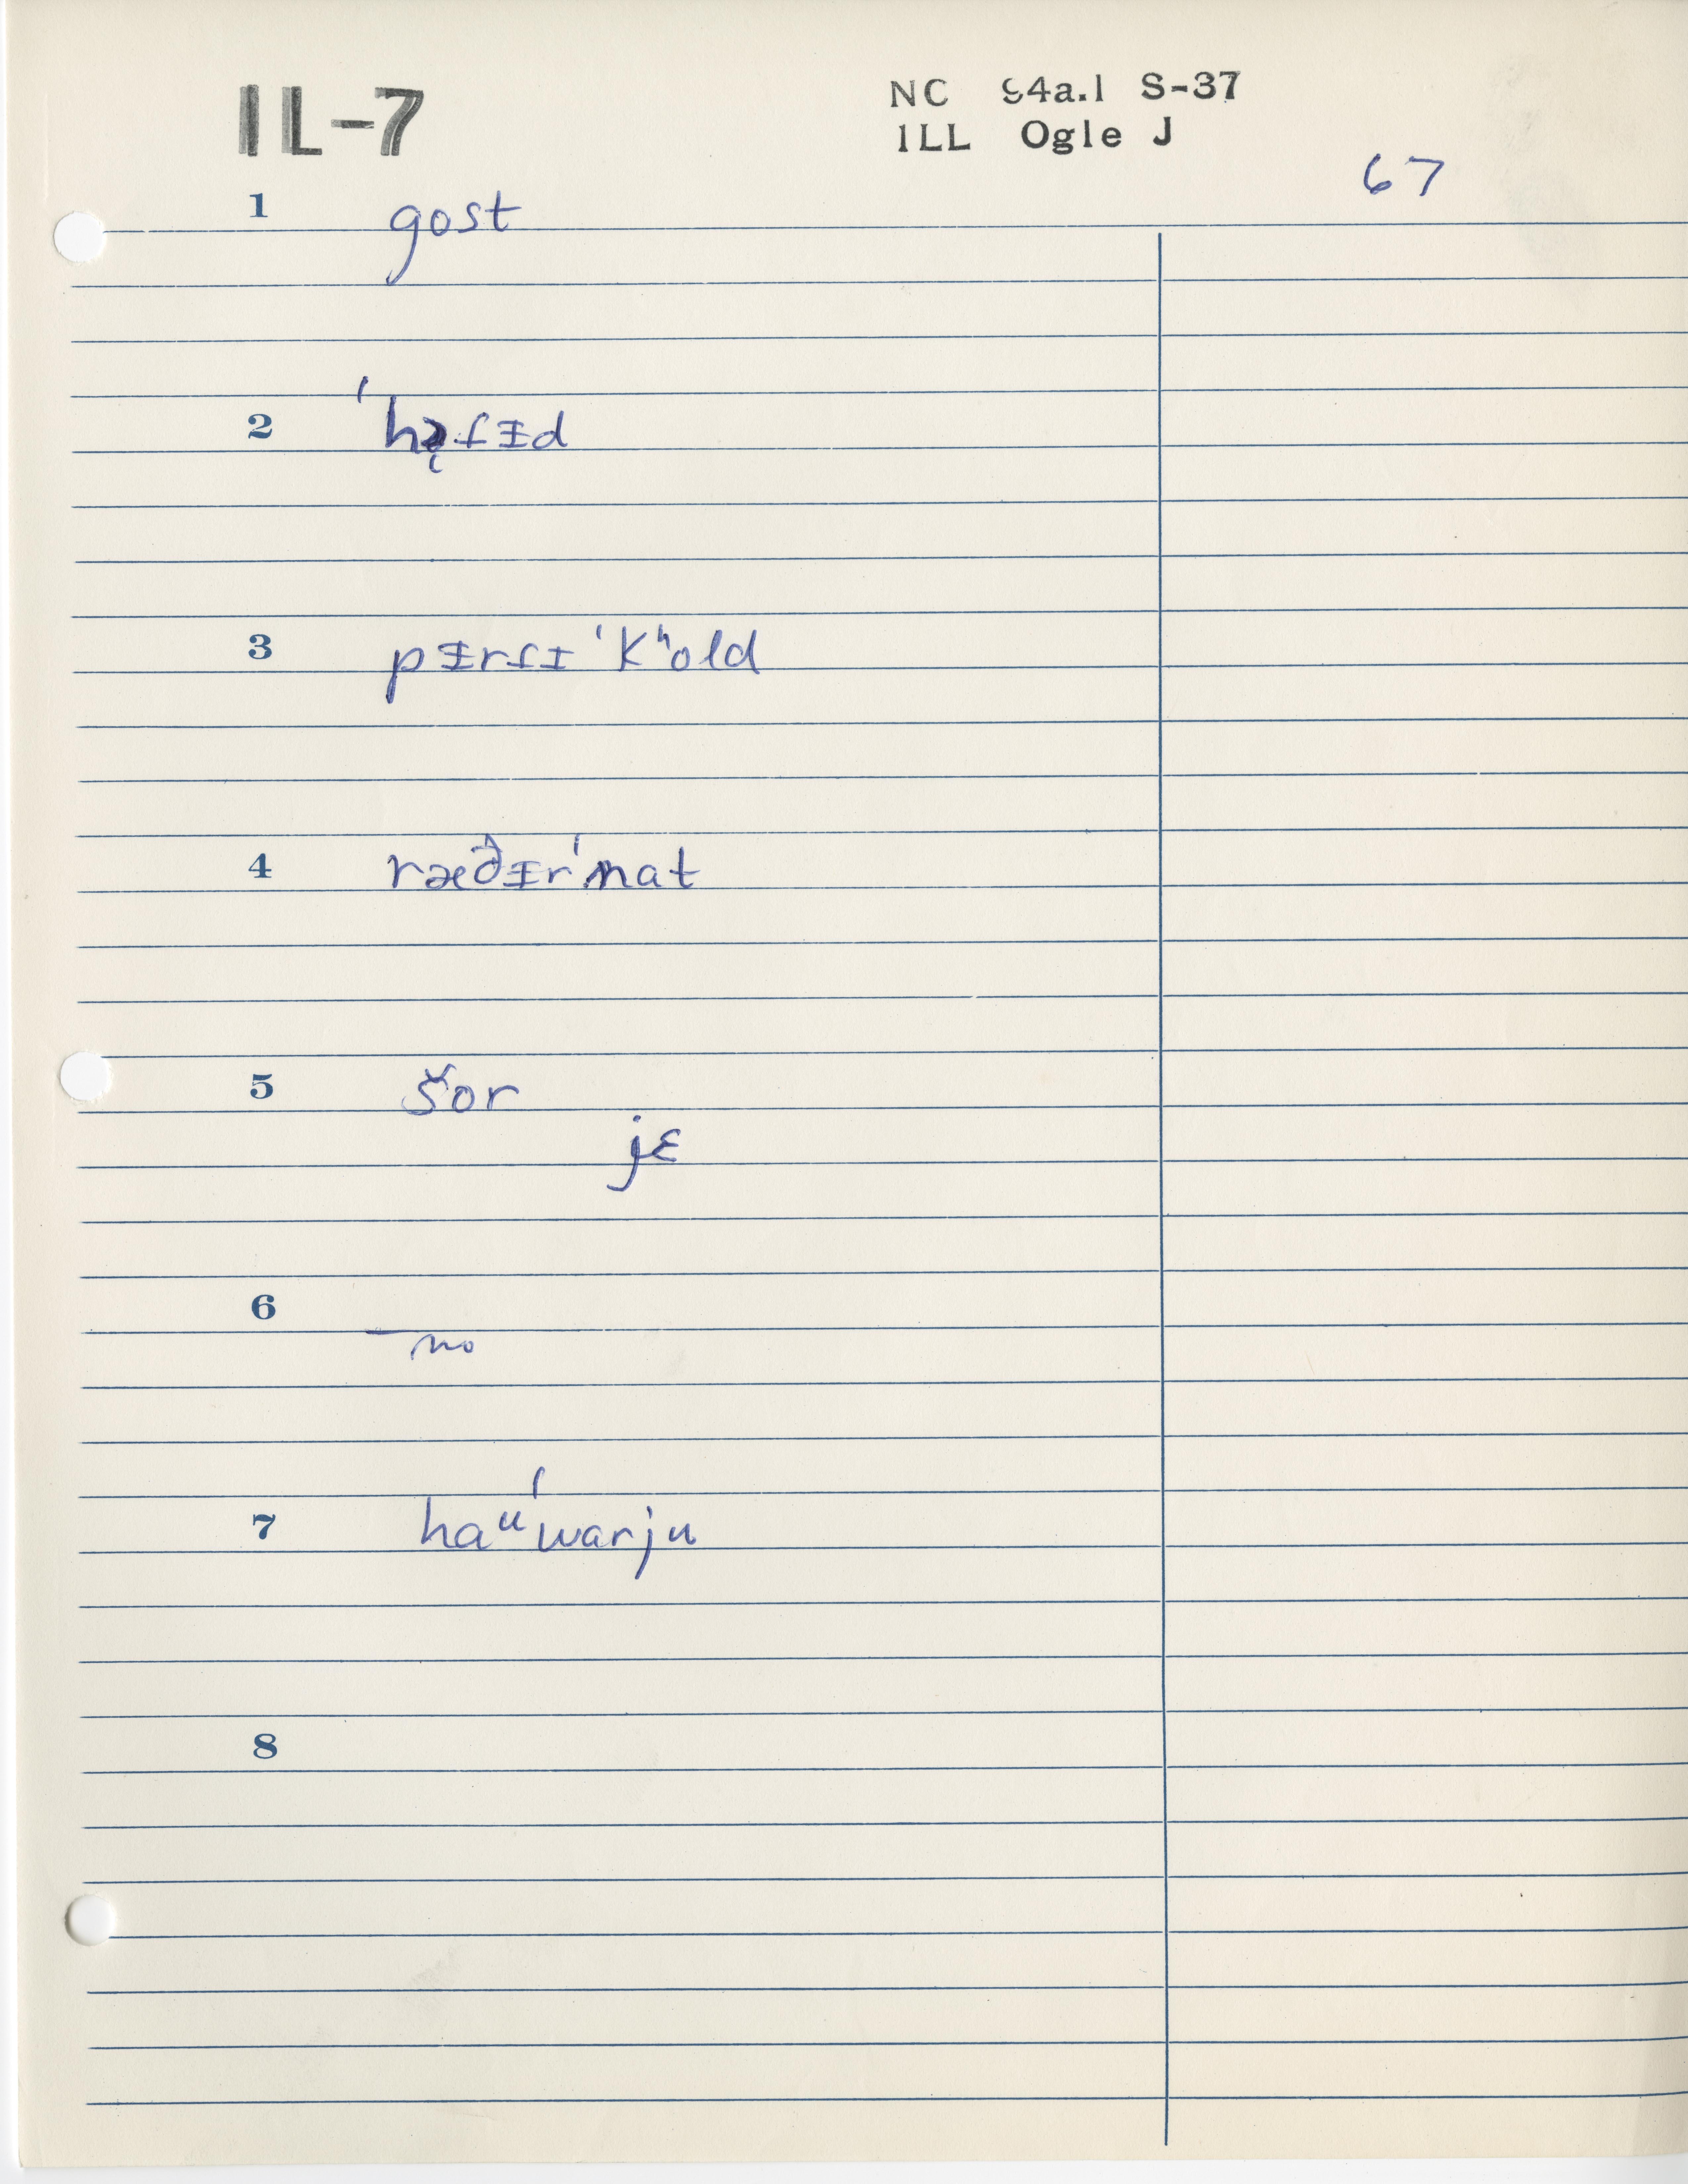 IL-7
NC 94a.1 S-37
ILL Ogle J
67
1 gost
2
3 pᵻrtᵻ ˈkʰold
4 ræðᵻrˈnat
5 šor
jɛ
6 — no
7 haᵘˈwarju
8